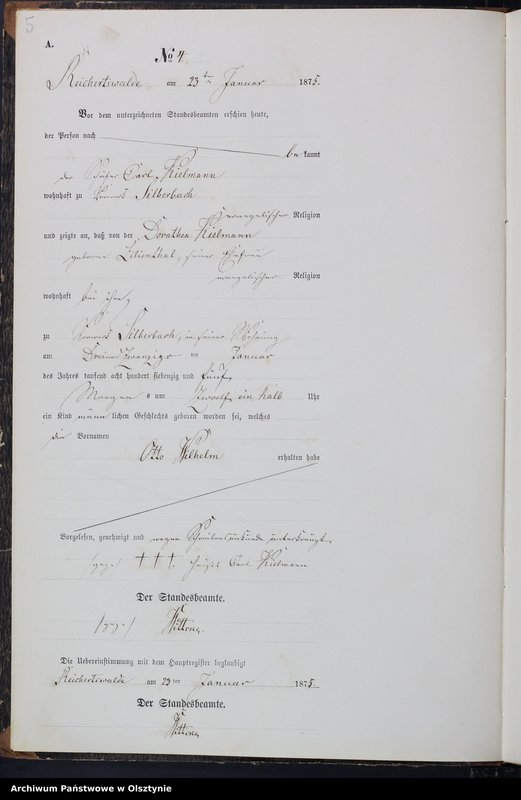 5
A.
№ 4
Reichertswalde am 23ten Januar 1875.
Vor dem unterzeichneten Standesbeamten erschien heute,
der Person nach
be kannt
der Carl Kielmann
wohnhaft zu Silberbach
evangelischer Religion
und zeigte an, daß von der Dorathea Kielmann
geborne Lilienthal, seiner Ehefrau
evangelischer Religion
wohnhaft bei ihm,
zu Silberbach, in seiner Wohnung
am Dreiundzwanzigs ten Januar
des Jahres tausend acht hundert siebenzig und fünf,
Morgen s um zwoelf ein halb Uhr
ein Kind männ lichen Geschlechts geboren worden sei, welches
die Vornamen
Otto Wilhelm erhalten habe
Vorgelesen, genehmigt und wegen Schreibensunkunde unterkreuzt
/gez/ ††† heißt Carl Kielmann
Der Standesbeamte.
/gez/ Wittong.
Die Uebereinstimmung mit dem Hauptregister beglaubigt
Reichertswalde am 23 ten Januar 1875.
Der Standesbeamte.
Wittong
Archiwum Państwowe w Olsztynie